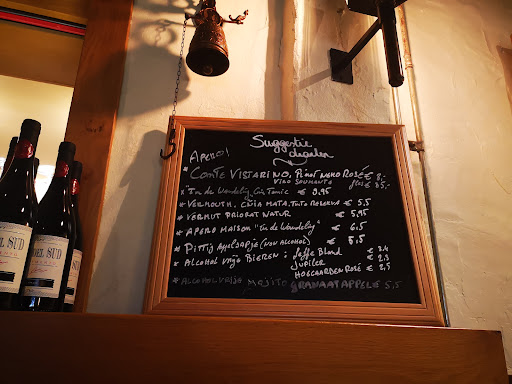 Suggestie
drankn
Apero!
Comte Vistarino, Pinot Nero Rosé € 8,-
Vino Spumante fles € 35,-
* In de Wandeling Gin Tonic € 9.95
* Vermouth, Guia Mata, Tinto Reserva € 5,5
* Vermut Priorat Natur € 5,95
* Apero Maison "In de Wandeling" € 6.5
* Pittig Appelsapje (non alcohol) € 5,5
* Alcohol vrije Bieren: Leffe Blond € 3.4
Jupiler € 2.5
Hoegaarden Rosé € 2,5
* Alcoholvrije Mojito Granaatappel € 5,5
EL SUD
DEL SUD